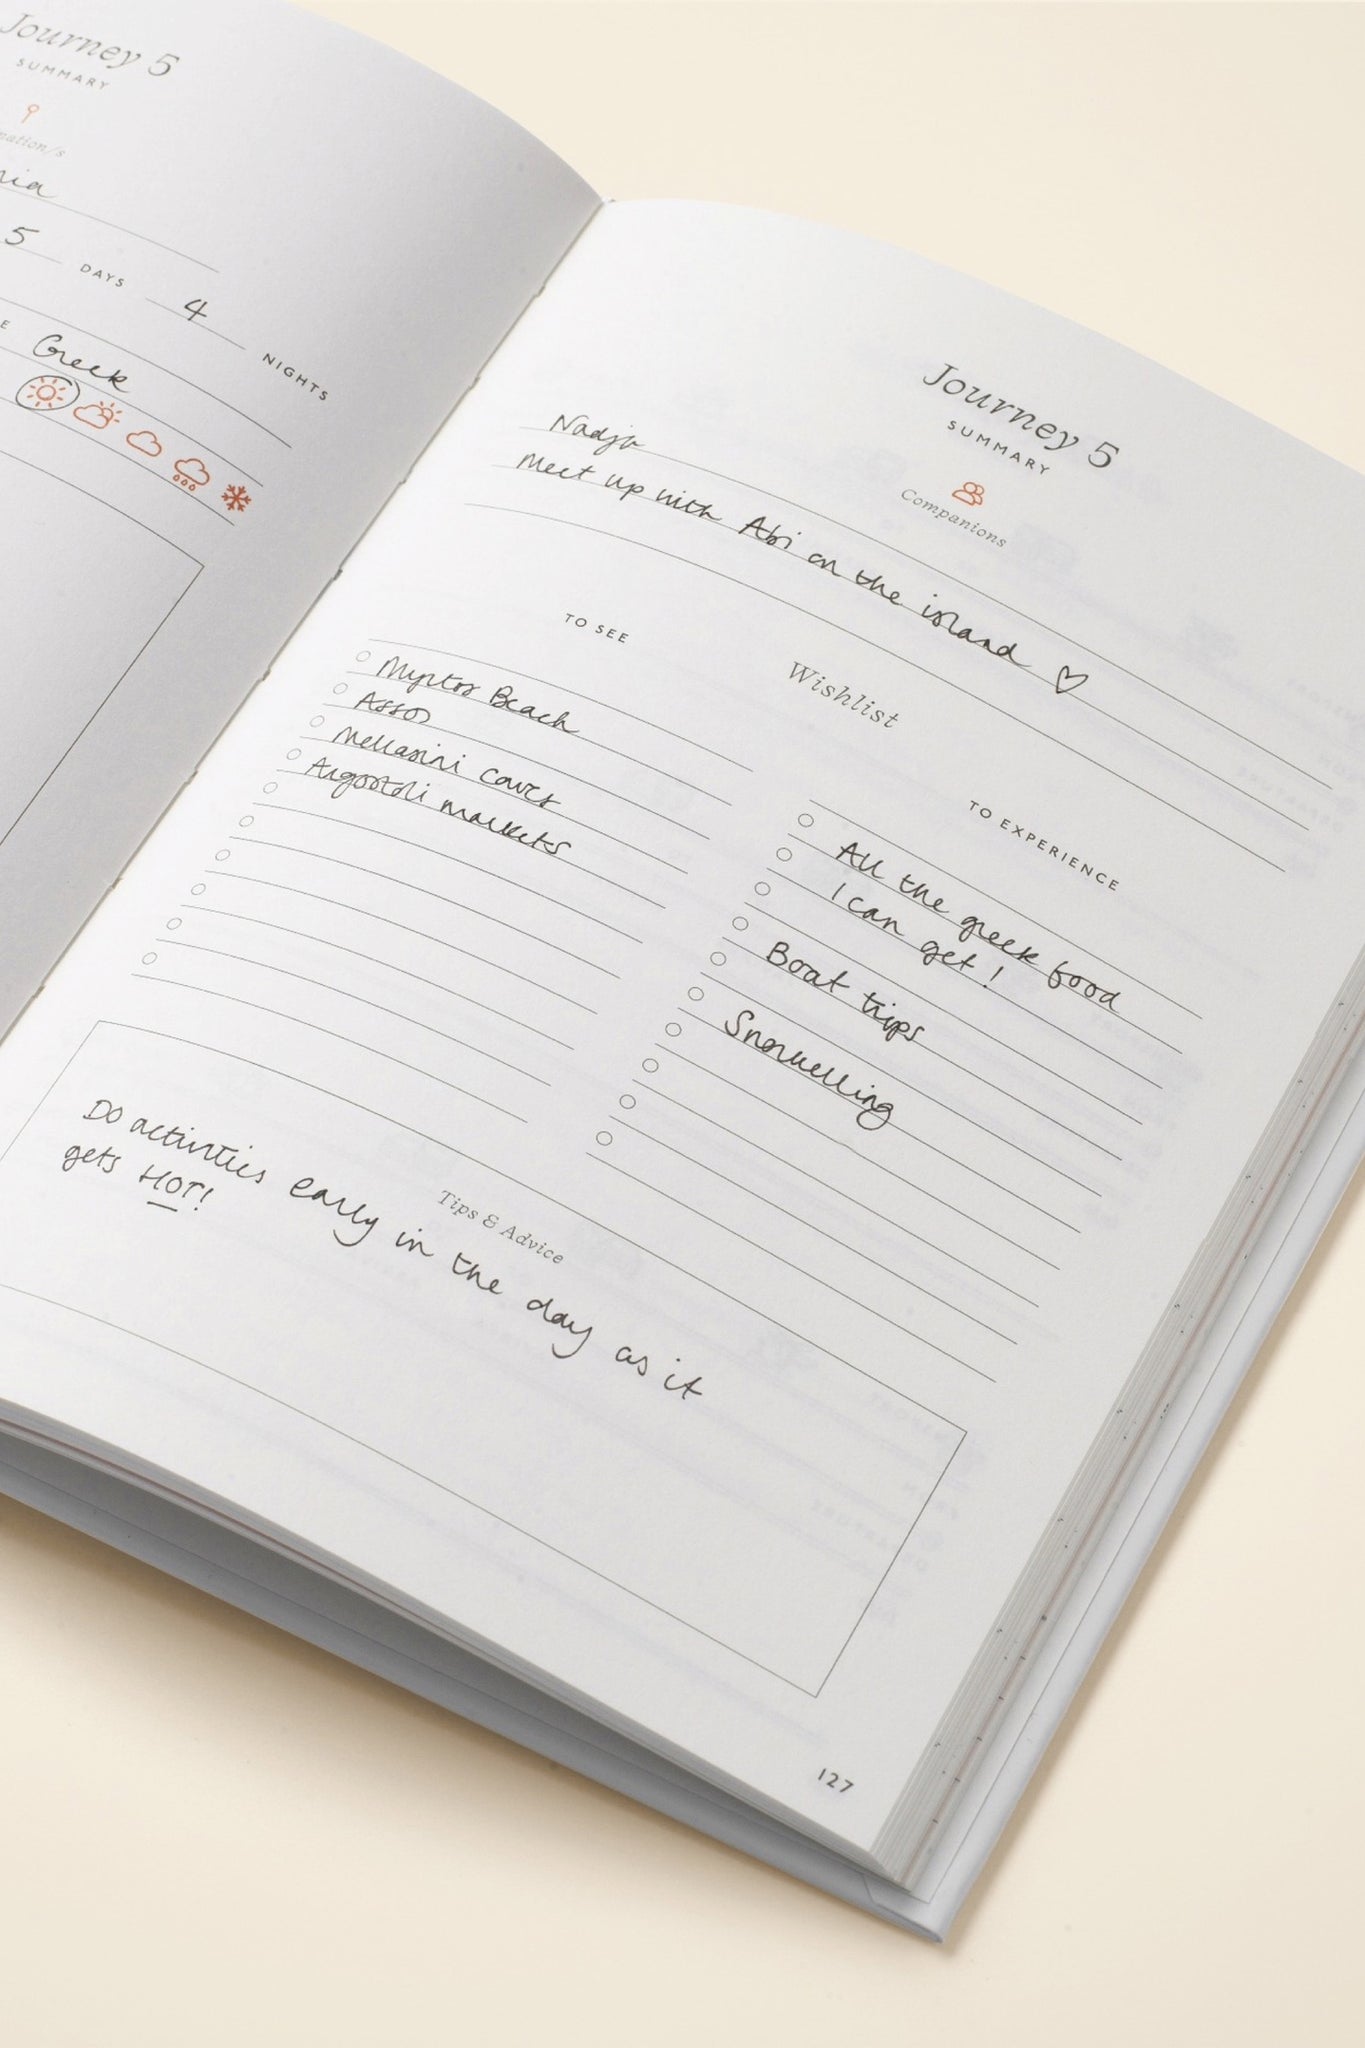 Journey 5
SUMMARY
5 DAYS 4 NIGHTS
Greek
Journey 5
SUMMARY
Companions
Nadja
Meet up with Abi on the island ♡
Wishlist
TO SEE
Myrtos Beach
Assos
Mellasini caves
Argostoli markets
TO EXPERIENCE
All the greek food
I can get!
Boat trips
Snorkelling
Tips & Advice
Do activities early in the day as it
gets HOT!
127